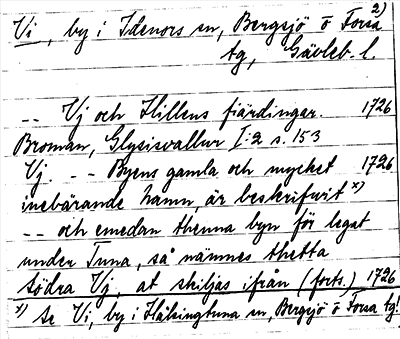 Vi, by i Idenors sn, Bergsjö o Forsa 2)
tg, Gävleb. l.
-- Vj och Hillens fiärdingar. 1726
Broman, Glysisvallur I:2 s. 153
Vj. -- Byens gamla och mycket 1726
inebärande namn, är beskrifwit x)
-- och emedan thenna byn för legat
under Tuna, så nämnes thetta
södra Vj, at skiljas ifrån (forts.) 1726
x) se Vi, by i Hälsingtuna sn, Bergsjö o Forsa tg!